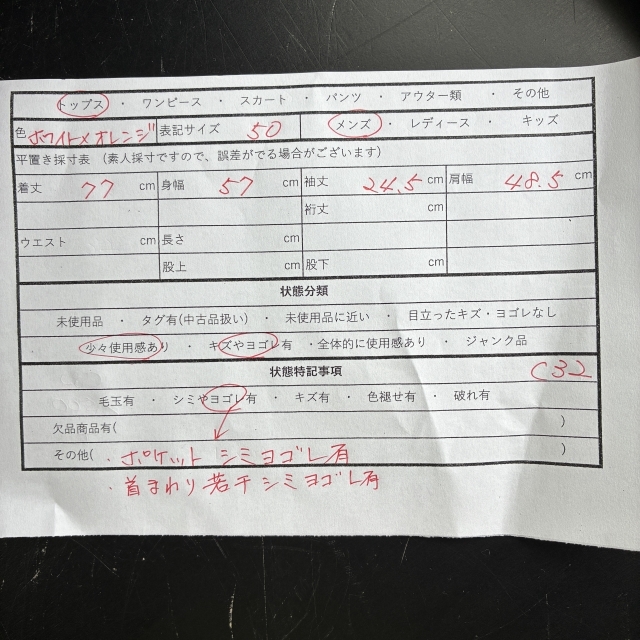 トップス ・ ワンピース ・ スカート ・ パンツ ・ アウター類 ・ その他
色 ホワイト×オレンジ 表記サイズ 50 メンズ ・ レディース ・ キッズ
平置き採寸表 (素人採寸ですので、誤差がでる場合がございます)
着丈 77 cm 身幅 57 cm 袖丈 24.5 cm 肩幅 48.5 cm
裄丈 cm
ウエスト cm 長さ cm
股上 cm 股下 cm
状態分類
未使用品 ・ タグ有(中古品扱い) ・ 未使用品に近い ・ 目立ったキズ・ヨゴレなし
少々使用感あり ・ キズやヨゴレ有 ・全体的に使用感あり ・ ジャンク品
状態特記事項 C32
毛玉有 ・ シミやヨゴレ有 ・ キズ有 ・ 色褪せ有 ・ 破れ有
欠品商品有( )
その他( ・ポケット シミヨゴレ有 )
・首まわり若干シミヨゴレ有